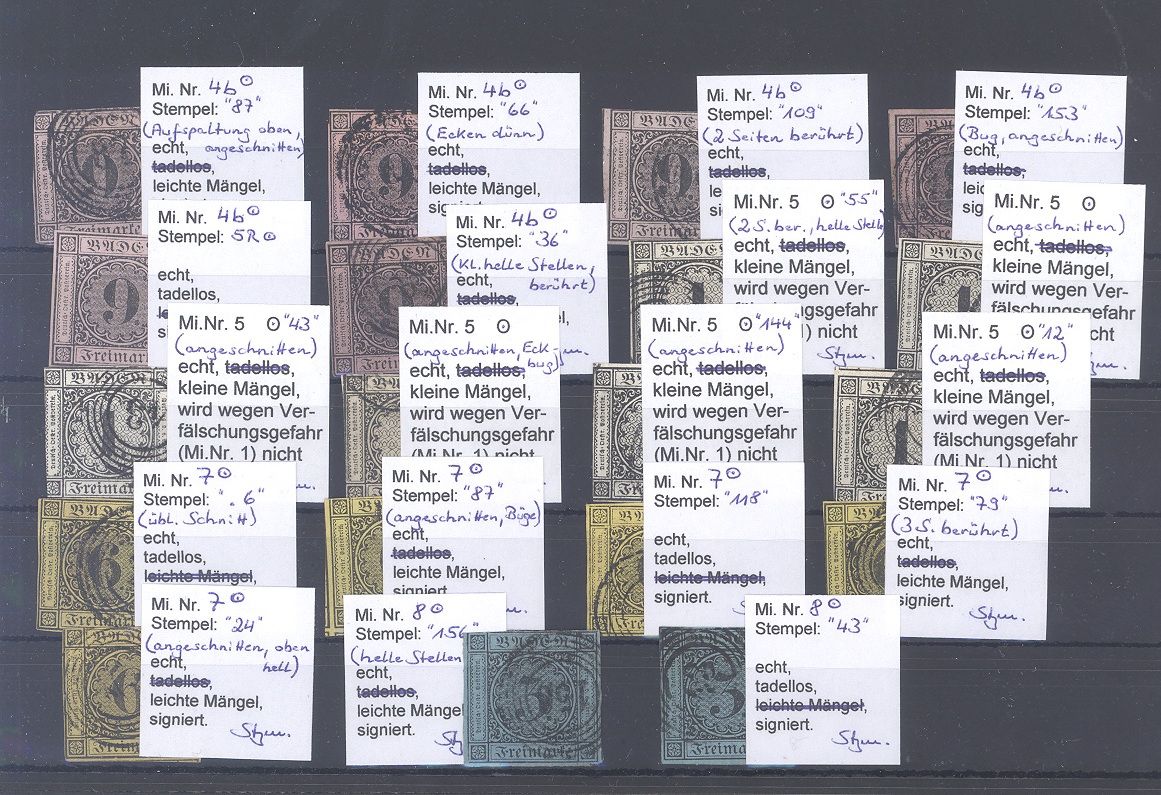 Mi. Nr. 4b ⊙
Stempel: "87"
(Aufspaltung oben,
echt, angeschnitten)
tadellos,
leichte Mängel,
Mi. Nr. 4b ⊙
Stempel: "66"
(Ecken dünn)
echt,
tadellos,
leichte Mängel,
Mi. Nr. 4b ⊙
Stempel: "109"
(2 Seiten berührt)
echt,
tadellos,
Mi. Nr. 4b ⊙
Stempel: "153"
(Bug, angeschnitten)
echt,
tadellos,
BADEN
9
Freimarke
BADEN
9
BADEN
9
Freimarke
BADEN
9
Mi. Nr. 4b ⊙
Stempel: 5R ⊙
echt,
tadellos,
Mi. Nr. 4b ⊙
Stempel: "36"
(Kl. helle Stellen,
echt, berührt)
tadellos,
Mi.Nr. 5 ⊙ "55"
(2 S. ber., helle Stelle)
echt, tadellos,
kleine Mängel,
wird wegen Ver-
fälschungsgefahr
(Mi.Nr. 1) nicht
Stzm.
Mi.Nr. 5 ⊙
(angeschnitten)
echt, tadellos,
kleine Mängel,
wird wegen Ver-
fälschungsgefahr
nicht
9
Freimarke
9
Freimarke
Mi.Nr. 5 ⊙ "43"
(angeschnitten)
echt, tadellos,
kleine Mängel,
wird wegen Ver-
fälschungsgefahr
(Mi.Nr. 1) nicht
Mi.Nr. 5 ⊙
(angeschnitten, Eck-
echt, tadellos, bug)
kleine Mängel,
wird wegen Ver-
fälschungsgefahr
(Mi.Nr. 1) nicht
Mi.Nr. 5 ⊙ "144"
(angeschnitten)
echt, tadellos,
kleine Mängel,
wird wegen Ver-
fälschungsgefahr
(Mi.Nr. 1) nicht
Mi.Nr. 5 ⊙ "12"
(angeschnitten)
echt, tadellos,
kleine Mängel,
wird wegen Ver-
fälschungsgefahr
(Mi.Nr. 1) nicht
Mi. Nr. 7 ⊙
Stempel: ". 6"
(übl. Schnitt)
echt,
tadellos,
leichte Mängel,
Mi. Nr. 7 ⊙
Stempel: "87"
(angeschnitten, Büge)
echt,
tadellos,
leichte Mängel,
signiert.
Mi. Nr. 7 ⊙
Stempel: "118"
echt,
tadellos,
leichte Mängel,
signiert.
Mi. Nr. 7 ⊙
Stempel: "79"
(3 S. berührt)
echt,
tadellos,
leichte Mängel,
signiert.
Stzm.
Mi. Nr. 7 ⊙
Stempel: "24"
(angeschnitten, oben
echt, hell)
tadellos,
leichte Mängel,
signiert.
Stzm.
Mi. Nr. 8 ⊙
Stempel: "156"
(helle Stellen
echt,
tadellos,
leichte Mängel
signiert.
BADEN
3
Freimarke
3
Mi. Nr. 8 ⊙
Stempel: "43"
echt,
tadellos,
leichte Mängel,
signiert.
Stzm.